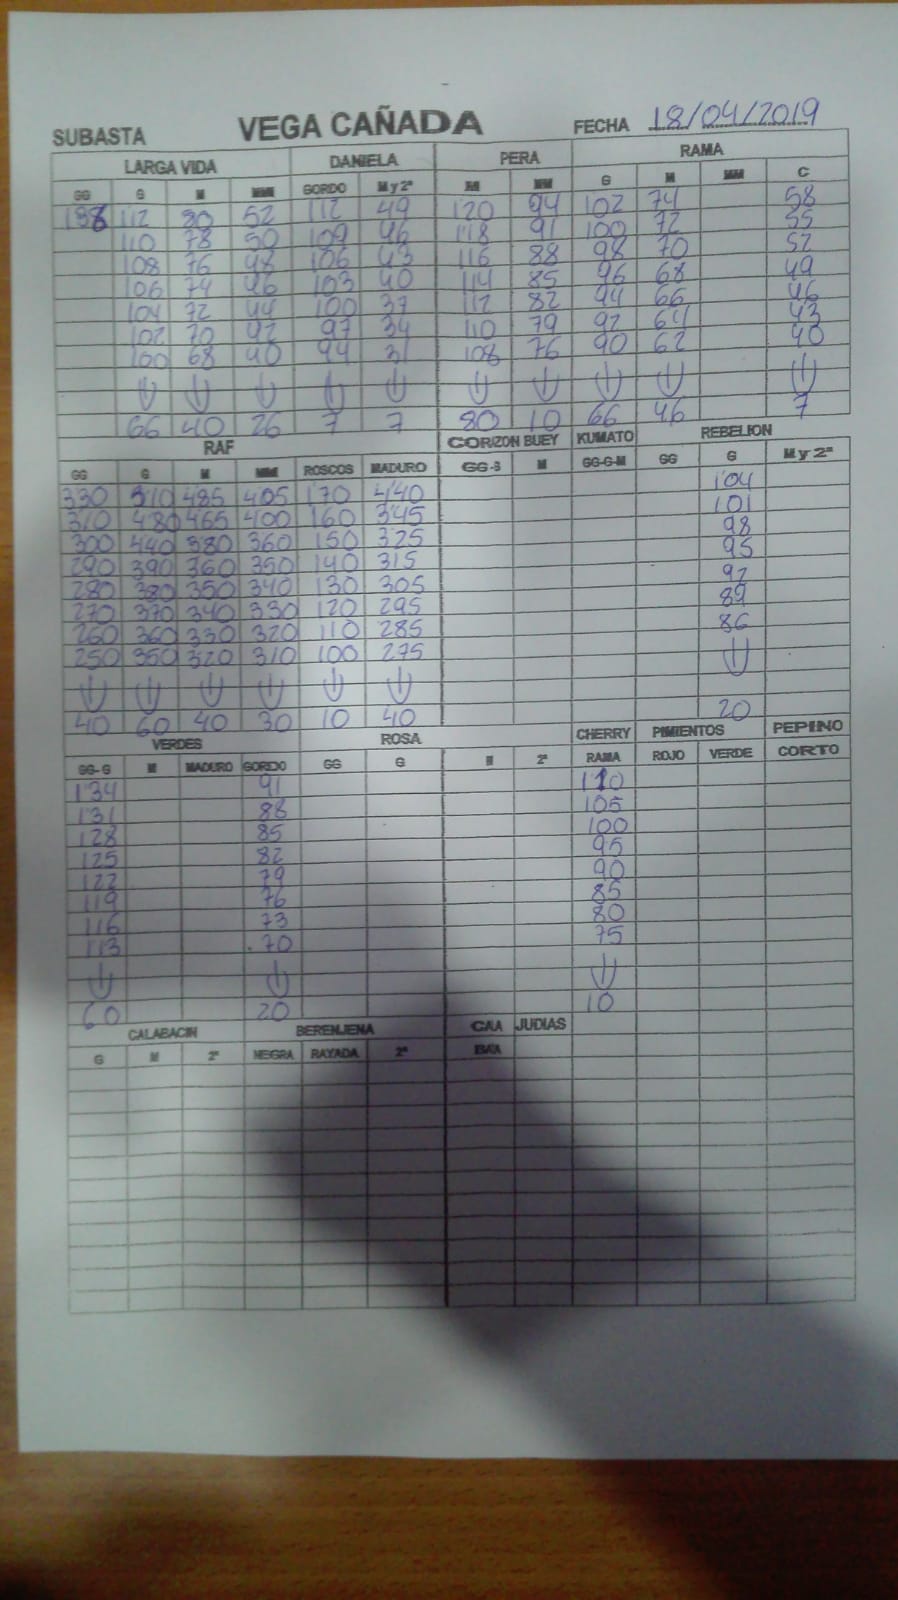 SUBASTA VEGA CAÑADA FECHA 18/04/2019
LARGA VIDA DANIELA PERA RAMA
GG G M MM GORDO M y 2ª M MM G M MM C
112 80 52 112 49 120 94 102 74 58
110 78 50 109 46 118 91 100 72 55
108 76 48 106 43 116 88 98 70 52
106 74 46 103 40 114 85 96 68 49
104 72 44 100 37 112 82 94 66 46
102 70 42 97 34 110 79 92 64 43
100 68 40 94 31 108 76 90 62 40
66 40 26 7 7 80 10 66 46 7
RAF CORIZON BUEY KUMATO REBELION
GG G M MM ROSCOS MADURO GG-S M GG-G-M GG G M y 2ª
330 510 485 405 170 440 104
310 480 465 400 160 345 101
300 440 380 360 150 325 98
290 390 360 350 140 315 95
280 380 350 340 130 305 92
270 370 340 330 120 295 89
260 360 330 320 110 285 86
250 350 320 310 100 275
40 60 40 30 10 40 20
VERDES ROSA CHERRY PIMIENTOS PEPINO
GG-G M MADURO GORDO GG G M 2ª RAMA ROJO VERDE CORTO
134 91 110
131 88 105
128 85 100
125 82 95
122 79 90
119 76 85
116 73 80
113 70 75
60 20 10
CALABACIN BERENJENA CAA JUDIAS
G M 2ª NEGRA RAYADA 2ª